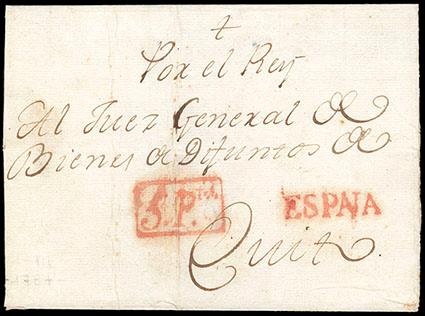 Por el Rey
Al Juez General de
Bienes de Difuntos de
ESPAÑA
Quito